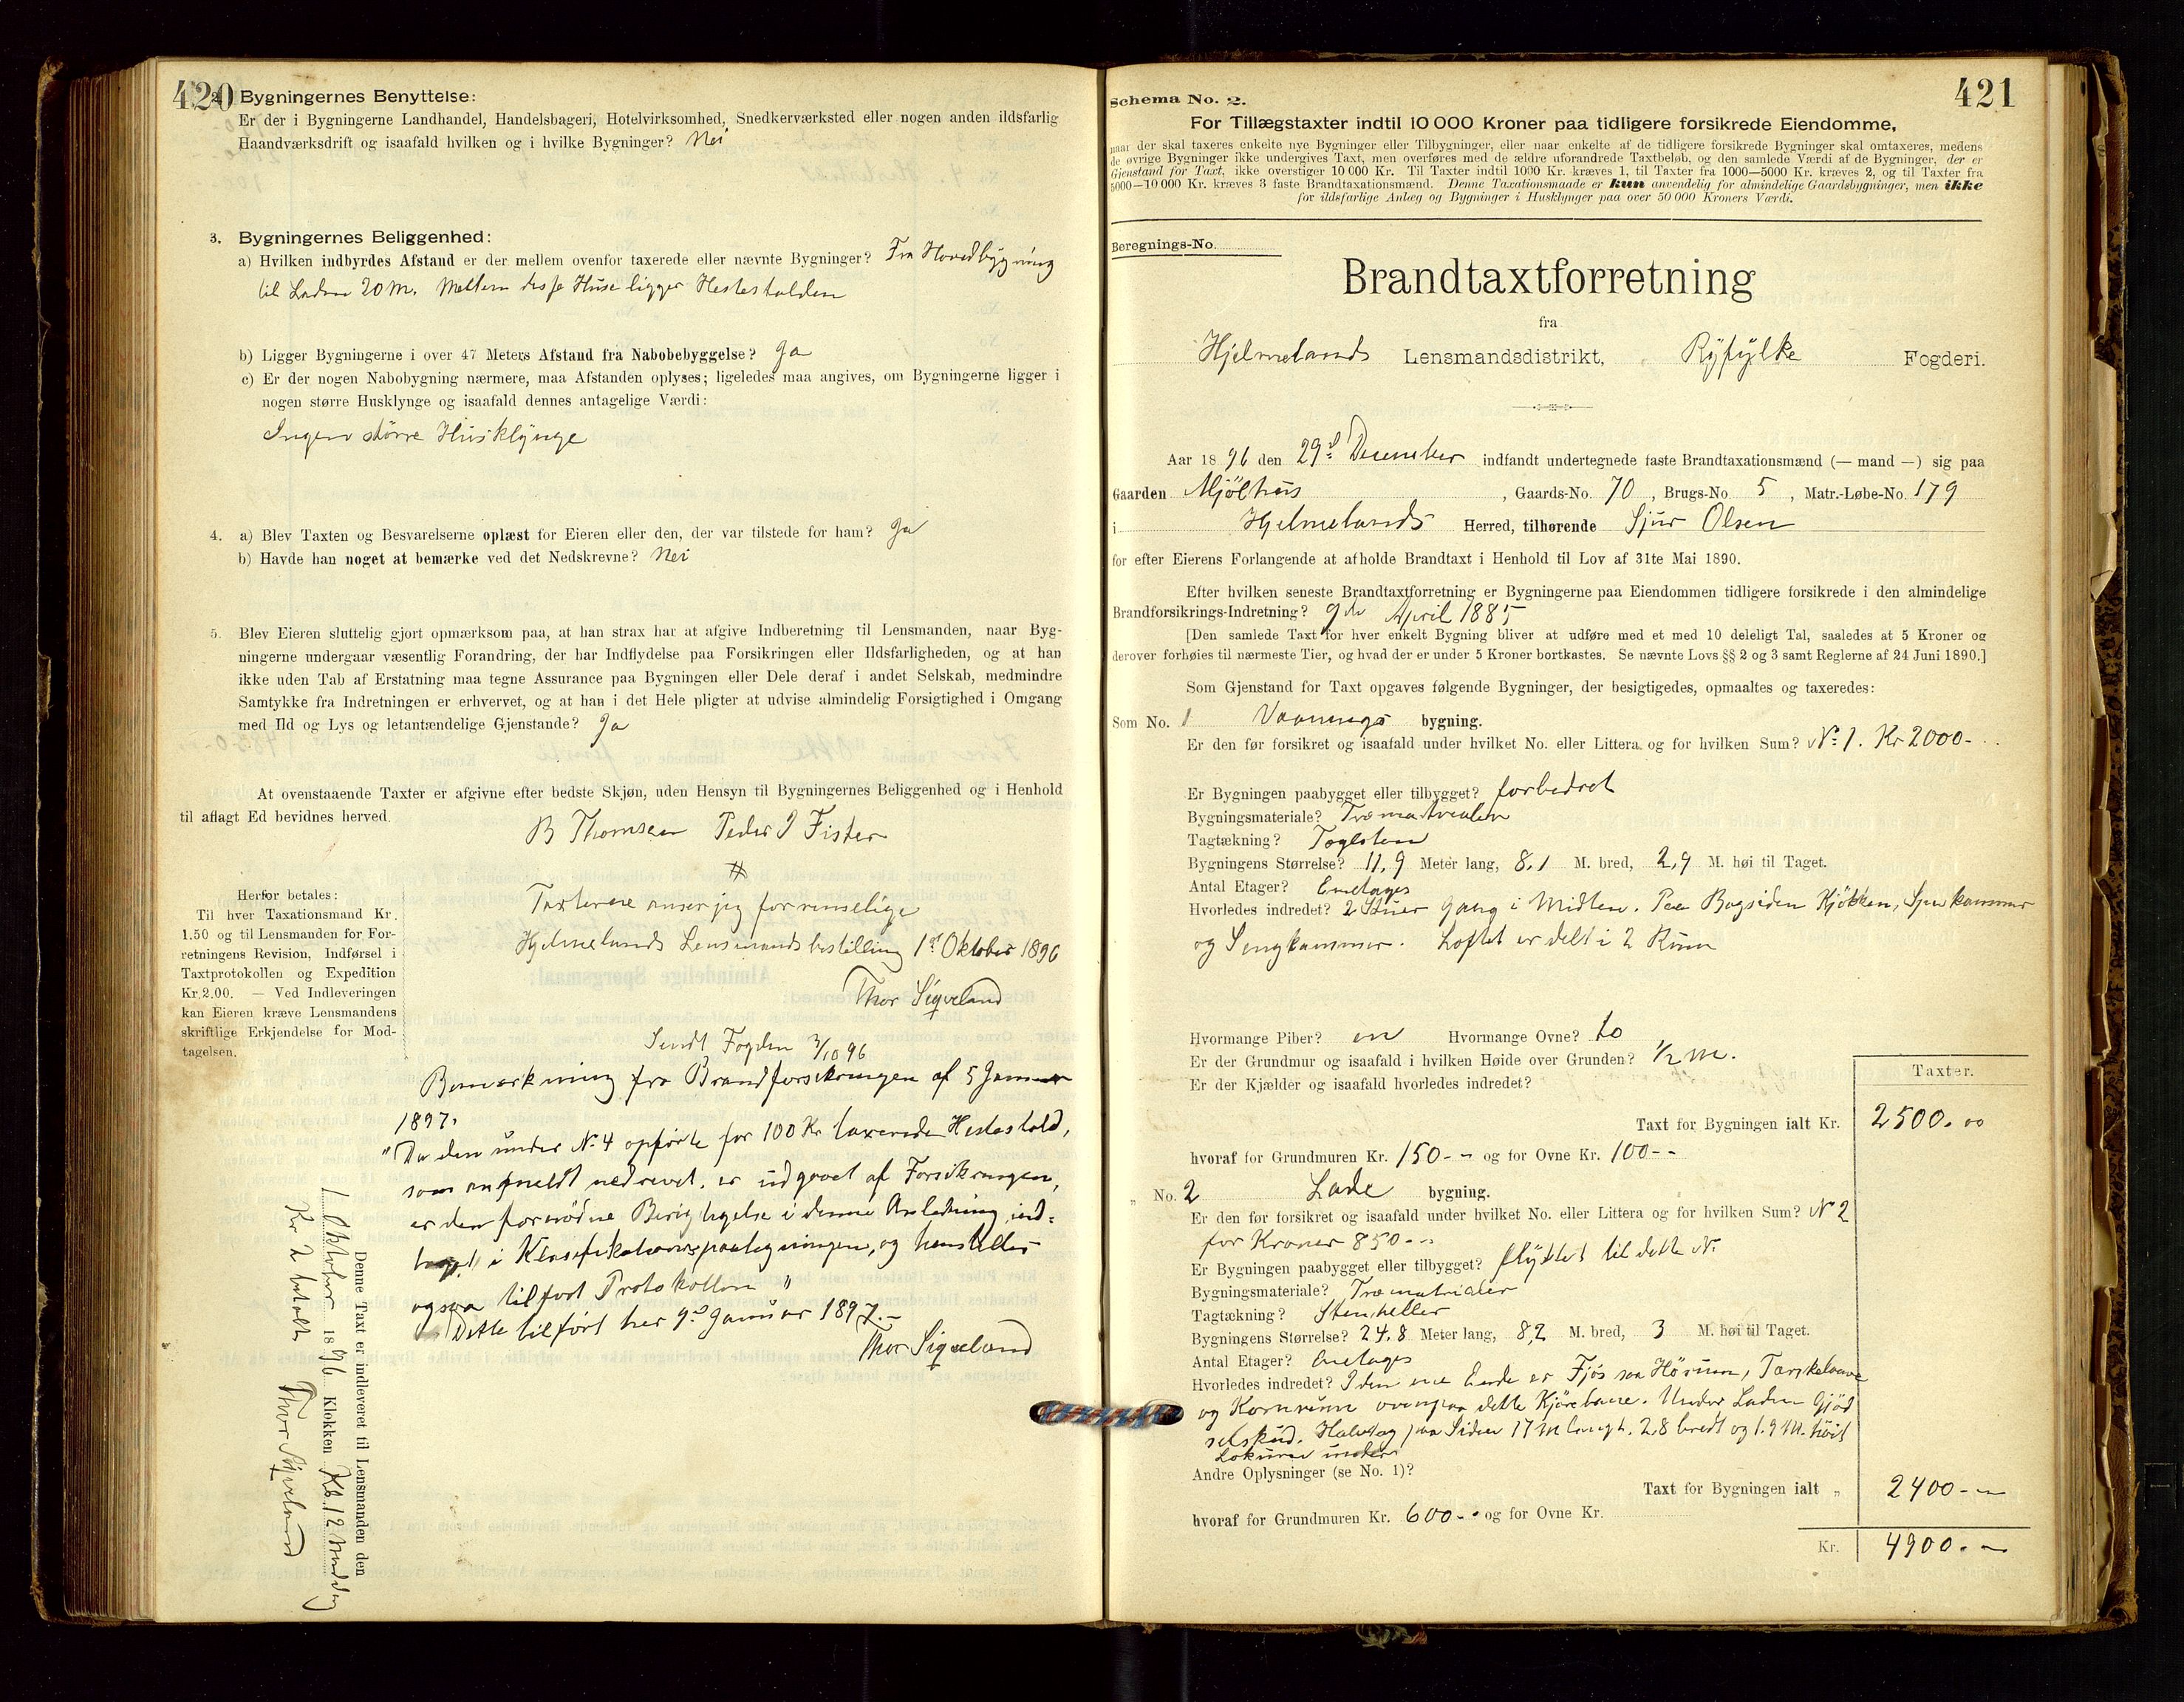 420
2. Bygningernes Benyttelse:
Er der i Bygningerne Landhandel, Handelsbageri, Hotelvirksomhed, Snedkerværksted eller nogen anden ildsfarlig
Haandværksdrift og isaafald hvilken og i hvilke Bygninger? Nei
3. Bygningernes Beliggenhed:
a) Hvilken indbyrdes Afstand er der mellem ovenfor taxerede eller nævnte Bygninger? Fra Hovedbygning
til Laden 20 m. Mellem disse Huse ligger Hestestalden
b) Ligger Bygningerne i over 47 Meters Afstand fra Nabobebyggelse? Ja
c) Er der nogen Nabobygning nærmere, maa Afstanden oplyses; ligeledes maa angives, om Bygningerne ligger i
nogen større Husklynge og isaafald dennes antagelige Værdi:
Ingen større Husklynge
4. a) Blev Taxten og Besvarelserne oplæst for Eieren eller den, der var tilstede for ham? Ja
b) Havde han noget at bemærke ved det Nedskrevne? Nei
5. Blev Eieren sluttelig gjort opmærksom paa, at han strax har at afgive Indberetning til Lensmanden, naar Byg-
ningerne undergaar væsentlig Forandring, der har Indflydelse paa Forsikringen eller Ildsfarligheden, og at han
ikke uden Tab af Erstatning maa tegne Assurance paa Bygningen eller Dele deraf i andet Selskab, medmindre
Samtykke fra Indretningen er erhvervet, og at han i det Hele pligter at udvise almindelig Forsigtighed i Omgang
med Ild og Lys og letantændelige Gjenstande? Ja
At ovenstaaende Taxter er afgivne efter bedste Skjøn, uden Hensyn til Bygningernes Beliggenhed og i Henhold
til aflagt Ed bevidnes herved.
B Thomsen Peder J Fister
Herfor betales:
Til hver Taxationsmand Kr.
1.50 og til Lensmanden for For-
retningens Revision, Indførsel i
Taxtprotokollen og Expedition
Kr. 2.00. — Ved Indleveringen
kan Eieren kræve Lensmandens
skriftlige Erkjendelse for Mod-
tagelsen.
Taxterne anser jeg for rimselige
Hjelmelands Lensmandsbestilling 1st Oktober 1896
Thor Sigveland
Sendt Fogden 3/10 96
Bemærkning fra Brandforsikringen af 5 Januar
1897.
"Da den under No 4 opførte for 100 Kr taxerede Hestestald,
som anmeldt nedrevet, er udgaaet af Forsikringen,
er den fornødne Berigtigelse i denne Anledning ind-
taget i Klasifikationspaategningen, og henstilles
ogsaa tilført Protokollen"
Dette tilført her 9d Januar 1897.-
Thor Sigveland
Denne Taxt er indleveret til Lensmanden den
1 Oktober 1896 Klokken Kl. 12 middag
Kr 2 betalt Thor Sigveland
421
Schema No. 2.
For Tillægstaxter indtil 10 000 Kroner paa tidligere forsikrede Eiendomme,
naar der skal taxeres enkelte nye Bygninger eller Tilbygninger, eller naar enkelte af de tidligere forsikrede Bygninger skal omtaxeres, medens
de øvrige Bygninger ikke undergives Taxt, men overføres med de ældre uforandrede Taxtbeløb, og den samlede Værdi af de Bygninger, der er
Gjenstand for Taxt, ikke overstiger 10 000 Kr. Til Taxter indtil 1000 Kr. kræves 1, til Taxter fra 1000—5000 Kr. kræves 2, og til Taxter fra
5000—10 000 Kr. kræves 3 faste Brandtaxationsmænd. Denne Taxationsmaade er kun anvendelig for almindelige Gaardsbygninger, men ikke
for ildsfarlige Anlæg og Bygninger i Husklynger paa over 50 000 Kroners Værdi.
Beregnings-No.
Brandtaxtforretning
fra
Hjelmelands Lensmandsdistrikt, Ryfylke Fogderi.
Aar 1896 den 29d December indfandt undertegnede faste Brandtaxationsmænd (— mand —) sig paa
Gaarden Mjølhus, Gaards-No. 70, Brugs-No. 5, Matr.-Løbe-No. 179
i Hjelmelands Herred, tilhørende Sjur Olsen
for efter Eierens Forlangende at afholde Brandtaxt i Henhold til Lov af 31te Mai 1890.
Efter hvilken seneste Brandtaxtforretning er Bygningerne paa Eiendommen tidligere forsikrede i den almindelige
Brandforsikrings-Indretning? 9de April 1885
[Den samlede Taxt for hver enkelt Bygning bliver at udføre med et med 10 deleligt Tal, saaledes at 5 Kroner og
derover forhøies til nærmeste Tier, og hvad der er under 5 Kroner bortkastes. Se nævnte Lovs §§ 2 og 3 samt Reglerne af 24 Juni 1890.]
Som Gjenstand for Taxt opgaves følgende Bygninger, der besigtigedes, opmaaltes og taxeredes:
Som No. 1 Vaanings bygning.
Er den før forsikret og isaafald under hvilket No. eller Littera og for hvilken Sum? No 1. Kr 2000-
Er Bygningen paabygget eller tilbygget? forbedret
Bygningsmateriale? Træmaterialer
Tagtækning? Teglsten
Bygningens Størrelse? 11,9 Meter lang, 8,1 M. bred, 2,9 M. høi til Taget.
Antal Etager? Enetages
Hvorledes indredet? 2 Stuer Gang i Midten. Paa Bagsiden Kjøkken, Spiskammer
og Sengkammer. Loftet er delt i 2 Rum
Hvormange Piber? en Hvormange Ovne? to
Er der Grundmur og isaafald i hvilken Høide over Grunden? 1/2 m.
Er der Kjælder og isaafald hvorledes indredet?
Taxter.
Taxt for Bygningen ialt Kr. 2500.00
hvoraf for Grundmuren Kr. 150-- og for Ovne Kr. 100--
„ No. 2 Lade bygning.
Er den før forsikret og isaafald under hvilket No. eller Littera og for hvilken Sum? No 2
for Kroner 850--
Er Bygningen paabygget eller tilbygget? flyttet til dette No.
Bygningsmateriale? Træmaterialer
Tagtækning? Stenheller
Bygningens Størrelse? 24,8 Meter lang, 8,2 M. bred, 3 M. høi til Taget.
Antal Etager? Enetages
Hvorledes indredet? I den ene Ende er Fjøs saa Hørum, Tærskelaave
og Kornrum ovenpaa dette Kjørebane. Under Laden Gjød
selskud. Halvtag paa Siden 17 m langt, 2,8 bredt og 1.9 m. høit
under
Andre Oplysninger (se No. 1)?
Taxt for Bygningen ialt „ 2400--
hvoraf for Grundmuren Kr. 600-- og for Ovne Kr.
Kr. 4900.-